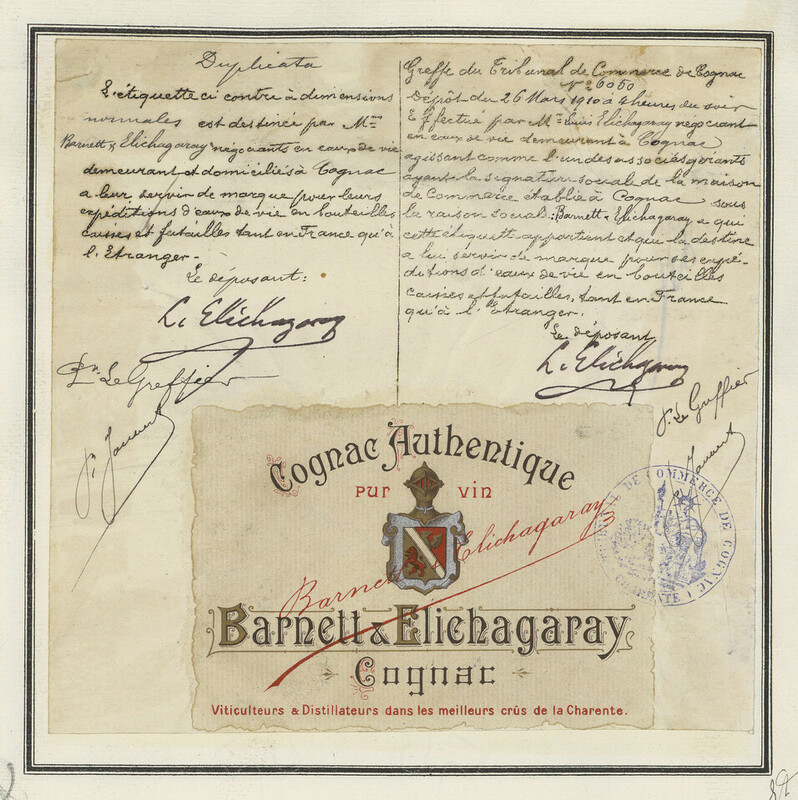 Duplicata
L'étiquette ci contre à dimensions
normales est destinée par M.rs
Barnett & Elichagaray négociants en eaux de vie
demeurant et domiciliés à Cognac
a leur servir de marque pour leurs
expéditions d'eaux de vie en bouteilles
caisses et futailles tant en France qu'à
l'Etranger.
Le déposant:
L. Elichagaray
Pr. Le Greffier
Greffe du Tribunal de Commerce de Cognac
N.º 6050
Dépôt du 26 Mars 1910 a 4 heures du soir
Effectué par M.r Louis Elichagaray négociant
en eaux de vie demeurant à Cognac
agissant comme l'un des associés gérants
ayant la signature sociale de la maison
de Commerce établie à Cognac sous
la raison sociale: Barnett & Elichagaray a qui
cette étiquette appartient et qui la destine
a lui servir de marque pour ses expé-
ditions d'eaux de vie en bouteilles
caisses et futailles, tant en France
qu'à l'Etranger.
Le déposant
L. Elichagaray
P. Le Greffier
Cognac Authentique
PUR VIN
Barnett & Elichagaray
Barnett & Elichagaray
Cognac
Viticulteurs & Distillateurs dans les meilleurs crûs de la Charente.
DE COMMERCE DE COGNAC